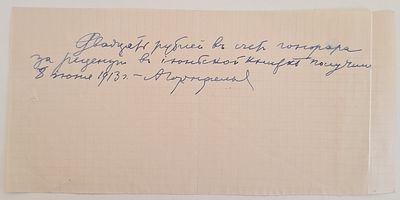 Двадцать рублей в счет гонорара
за рецензию в июньской книжке получил
8 июня 1913 г. – А Горнфельд